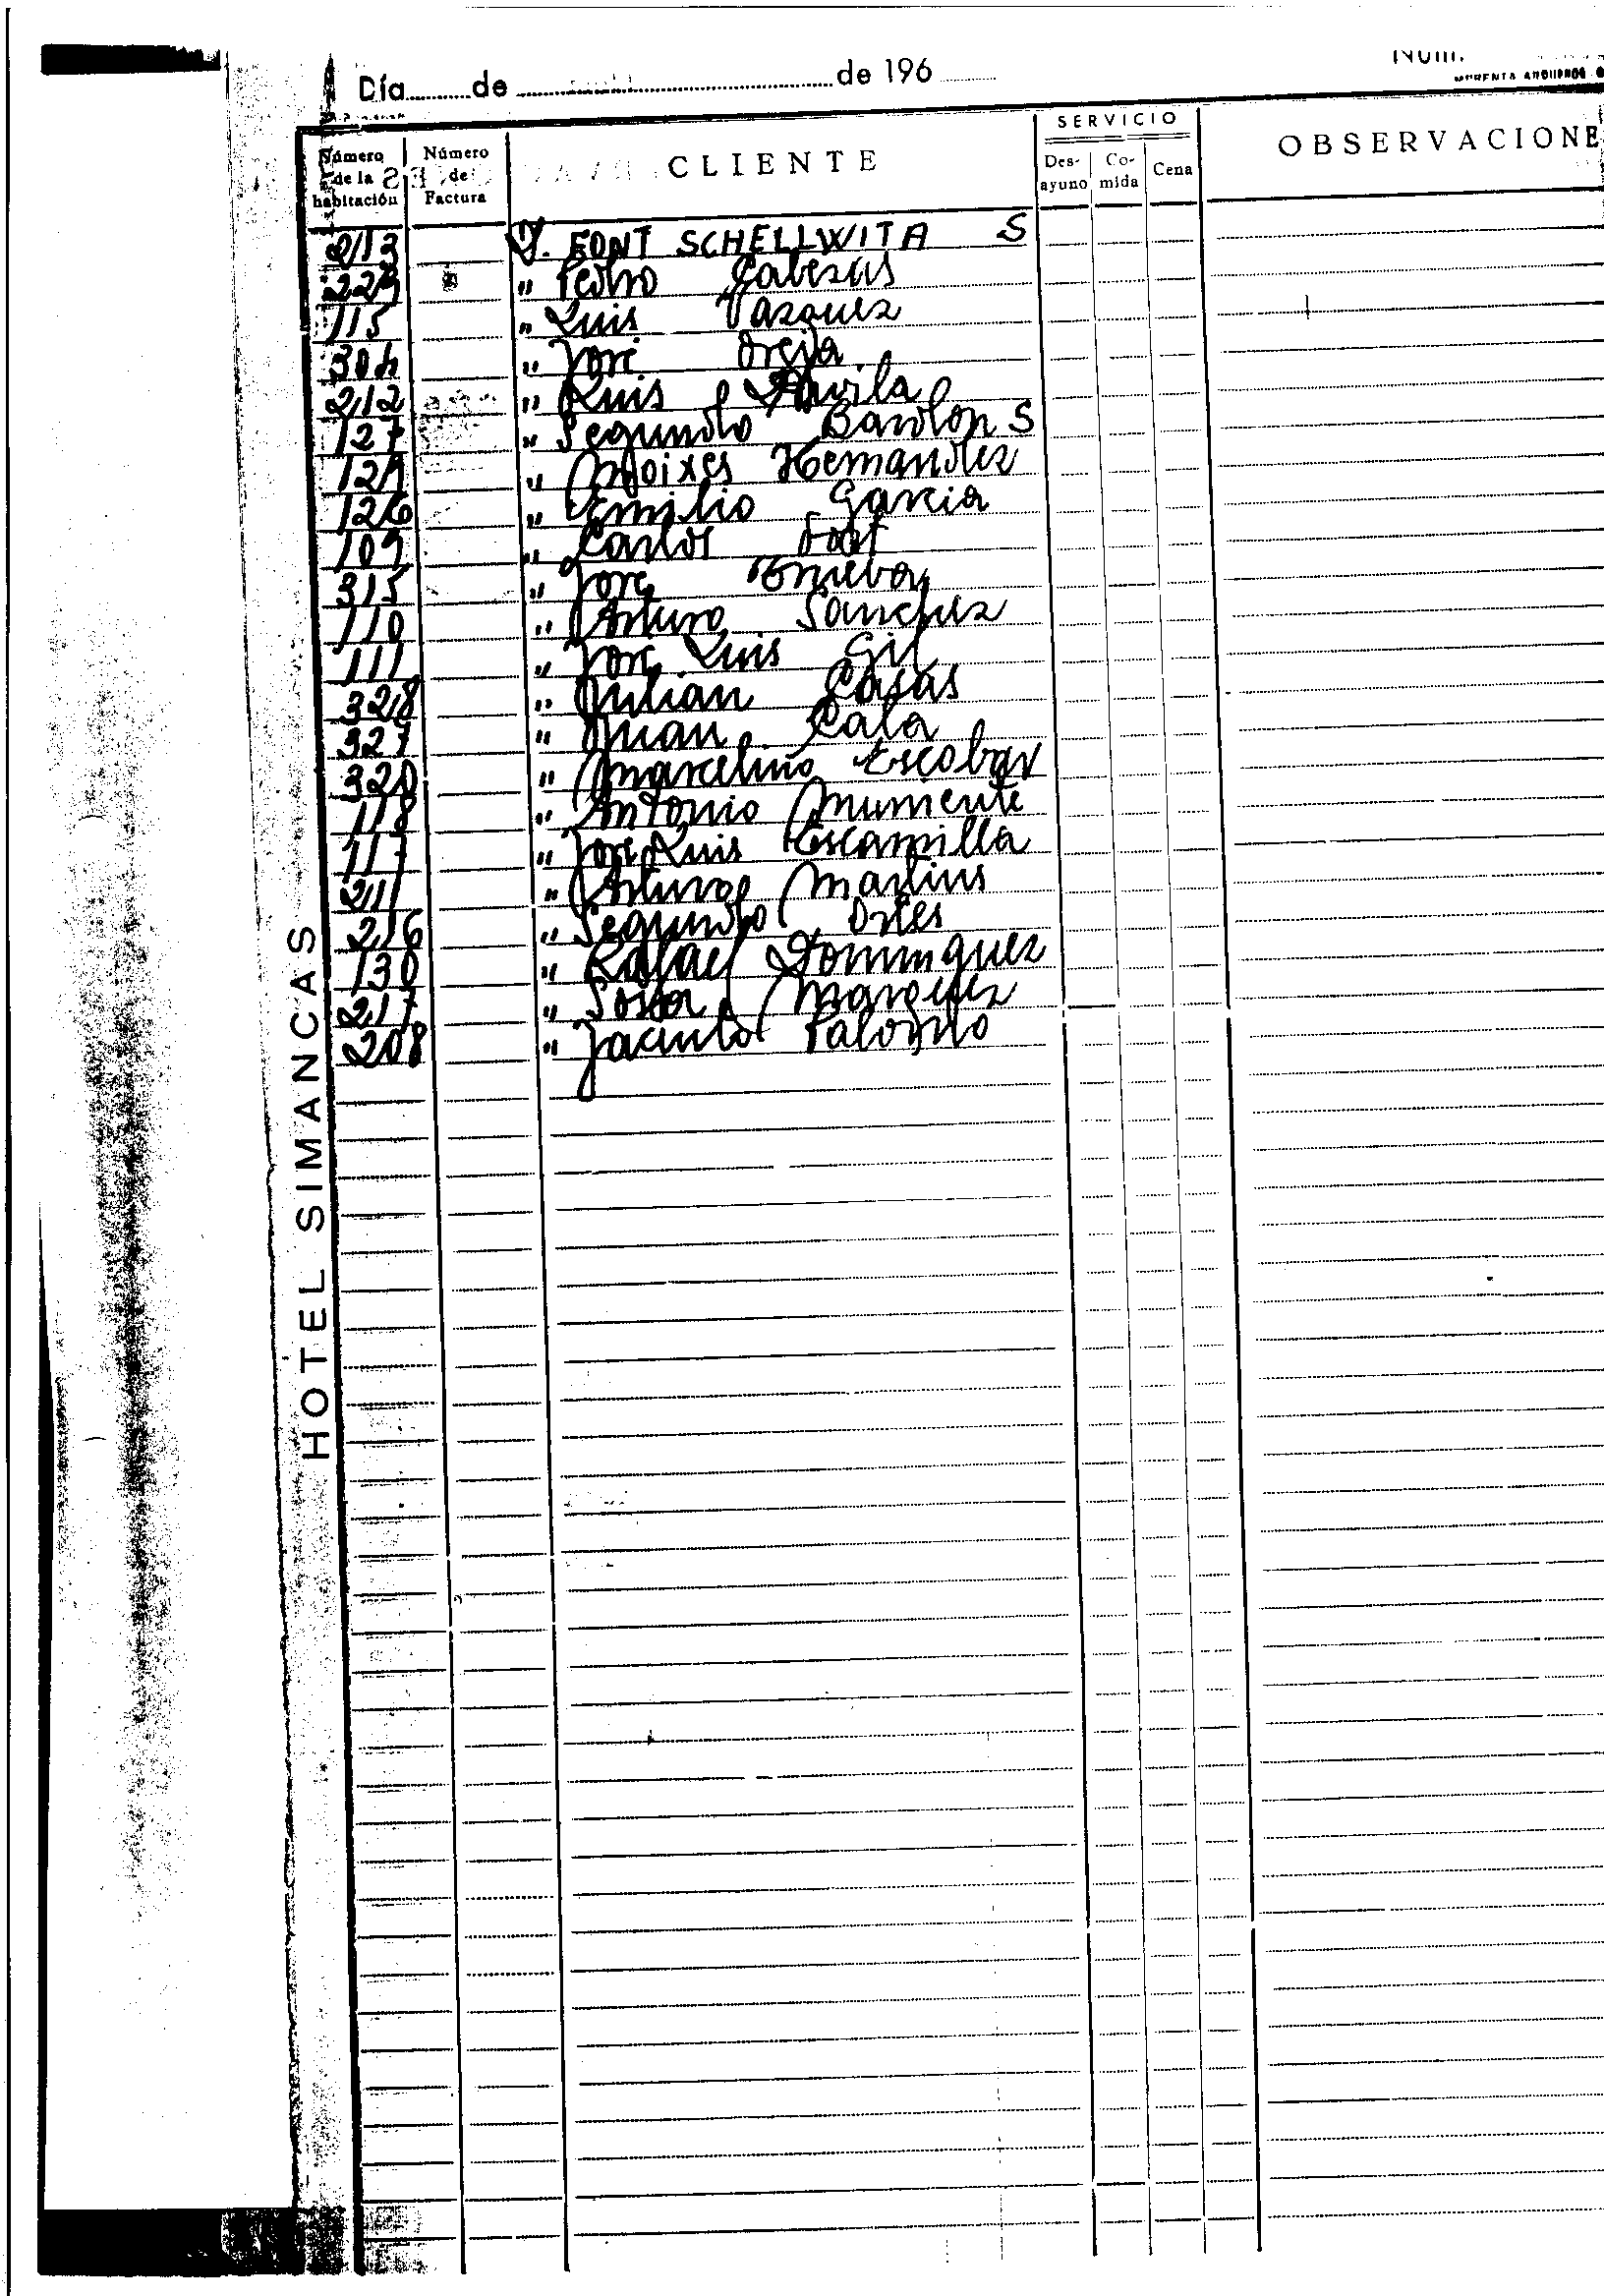 Día de de 196
Núm.
SERVICIO
Número de la habitación
Número de Factura
CLIENTE
Des-ayuno
Co-mida
Cena
OBSERVACIONE
213 D. FONT SCHELLWITA S
229 " Pedro Cabezas
115 " Luis Vazquez
304 " José Oreja
212 " Luis Davila
127 " Segundo S
129 " Moixes Hernandez
126 " Emilio Garcia
109 " Carlos
315 " Jose
110 " Arturo Sanchez
111 " Jose Luis Gil
328 " Julian Casas
327 " Juan Cala
320 " Marcelino Escobar
118 " Antonio
117 " Jose Luis Escamilla
211 " Arturo Martins
216 " Segundo
130 " Rafael Dominguez
217 " Marquez
208 " Jacinto
HOTEL SIMANCAS